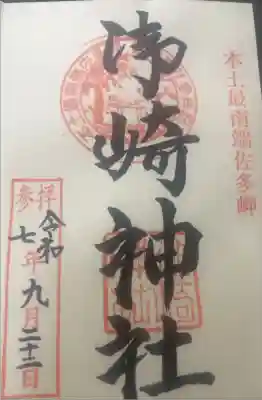 本土最南端佐多岬
御崎神社
参拝
令和七年九月二十二日